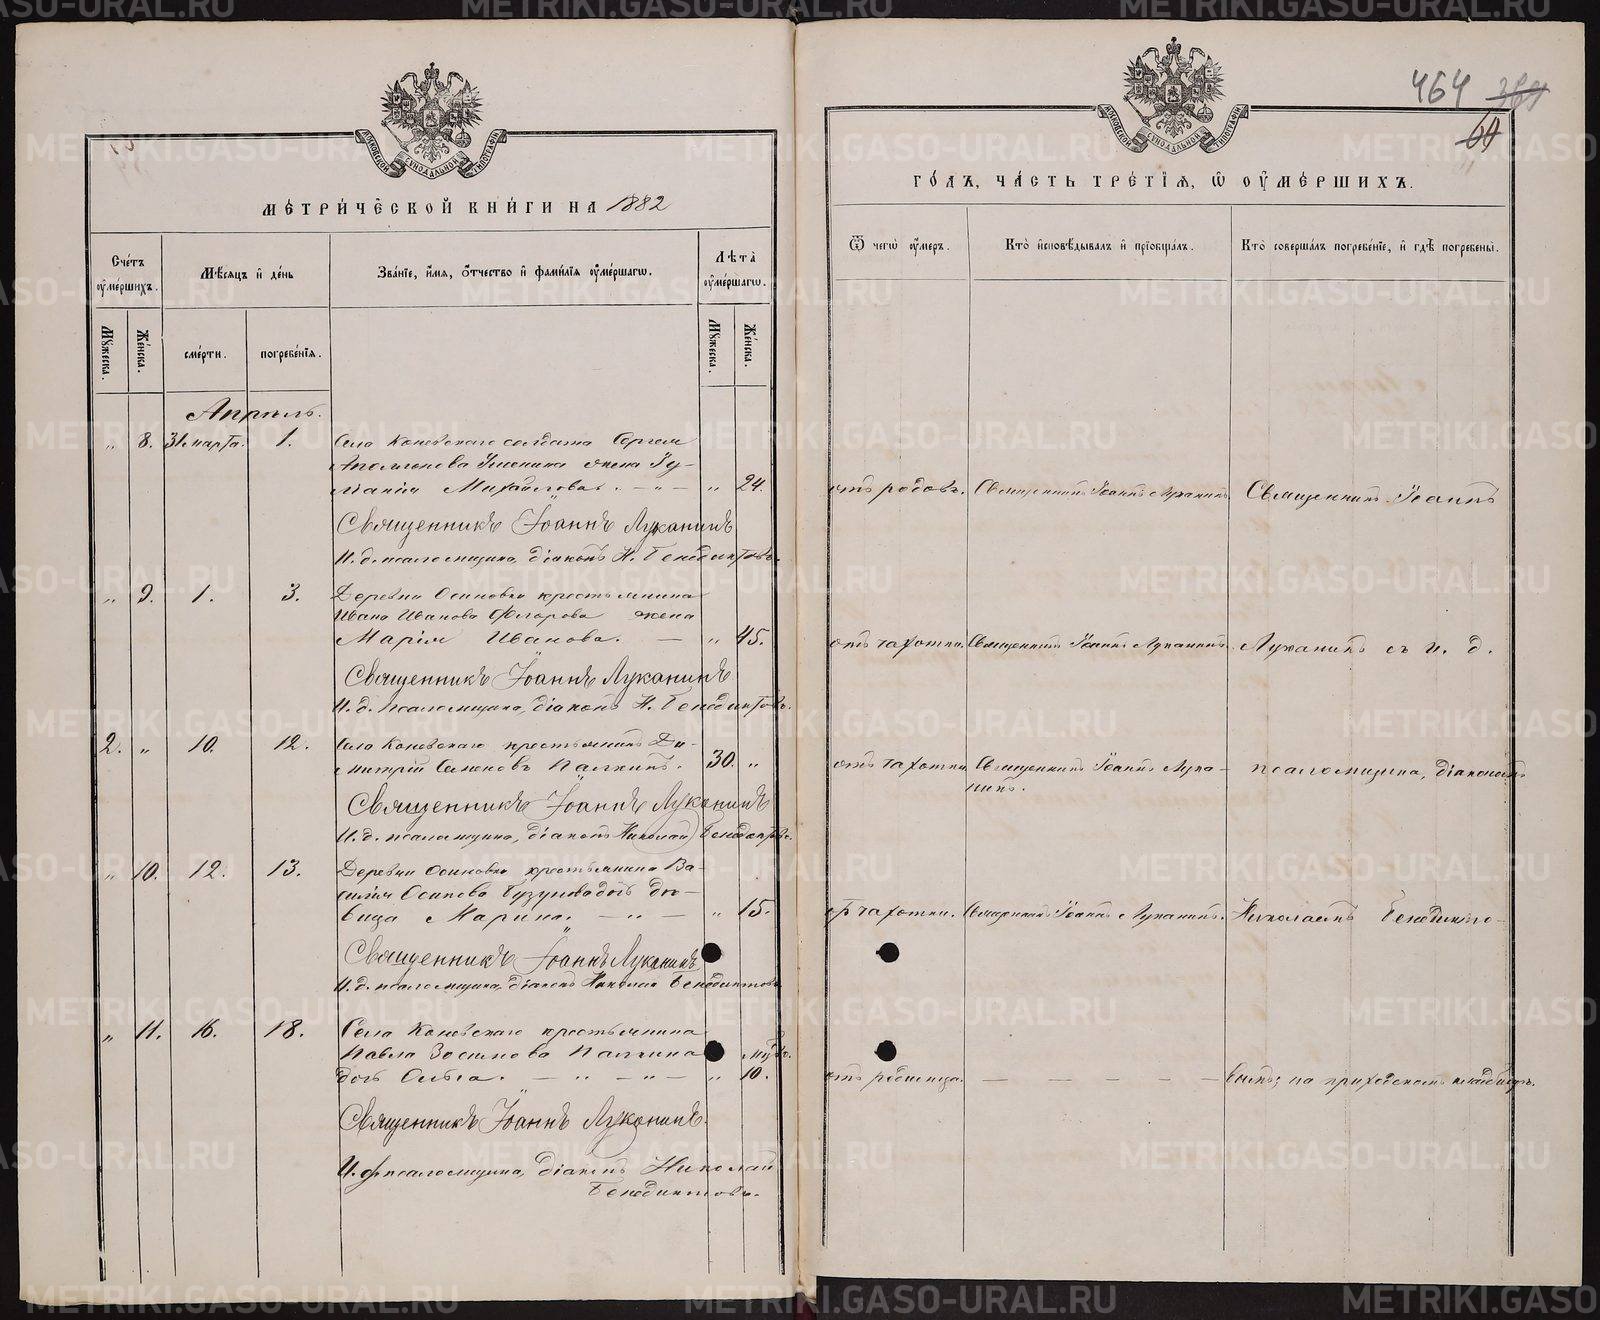 МЕТРИЧЕСКОЙ КНИГИ НА 1882
Счетъ умершихъ.
Мѣсяцъ и день
Званіе, имя, отчество и фамилія умершагѡ.
Лѣта умершагѡ.
Мужеска.
Женска.
смерти.
погребенія.
Мужеска.
Женска.
Апрѣль.
" 8. 31 марта. 1. Села Коневскаго солдата Сергея
жена
Михайлова. — " — " 24.
Священникъ Іоаннъ Луканинъ
И. д. псаломщика, діаконъ Н. Бенедиктовъ.
" 9. 1. 3. Деревни Осиновки крестьянина
Ивана Иванова Федорова жена
Марія Иванова. — " 45.
Священникъ Іоаннъ Луканинъ
И. д. псаломщика, діаконъ Н. Бенедиктовъ.
2. " 10. 12. Села Коневскаго крестьянинъ Ди-
митрій Семеновъ Палкинъ. 30. "
Священникъ Іоаннъ Луканинъ
И. д. псаломщика, діаконъ Николай Бенедиктовъ.
" 10. 12. 13. Деревни Осиновки крестьянина Ва-
силія Осипова дочь дѣ-
вица Марина. — " — " 15.
Священникъ Іоаннъ Луканинъ
И. д. псаломщика, діаконъ Николай Бенедиктовъ.
" 11. 16. 18. Села Коневскаго крестьянина
Павла Зосимова Палкина
дочь Ольга. — " — " — " 10.
Священникъ Іоаннъ Луканинъ.
псаломщика, діаконъ Николай
Бенедиктовъ.
464
60
ГОДЪ, ЧАСТЬ ТРЕТІЯ, Ѡ УМЕРШИХЪ.
Ѿ чегѡ умеръ.
Кто исповѣдывалъ и пріобщалъ.
Кто совершалъ погребеніе, и гдѣ погребены.
отъ родовъ. Священникъ Іоаннъ Луканинъ. Священникъ Іоаннъ
отъ чахотки. Священникъ Іоаннъ Луканинъ. Луканинъ съ и. д.
отъ чахотки Священникъ Іоаннъ Лука-
нинъ.
псаломщика, діакономъ
отъ чахотки. Священникъ Іоаннъ Луканинъ. Николаемъ Бенедикто-
отъ родимца. — — — — — вымъ; на приходскомъ кладбищѣ.
METRIKI.GASO-URAL.RU